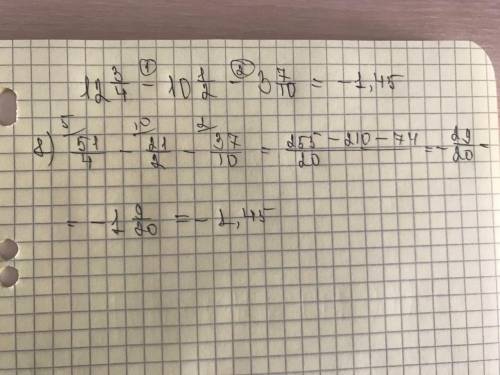 12 3/4 ①- 10 1/2 ②- 3 7/10 = -1,45
8) 51/4 (5 - 21/2 (10 - 37/10 (2 = 255 - 210 - 74/20 = - 29/20 =
= -1 9/20 = -1,45